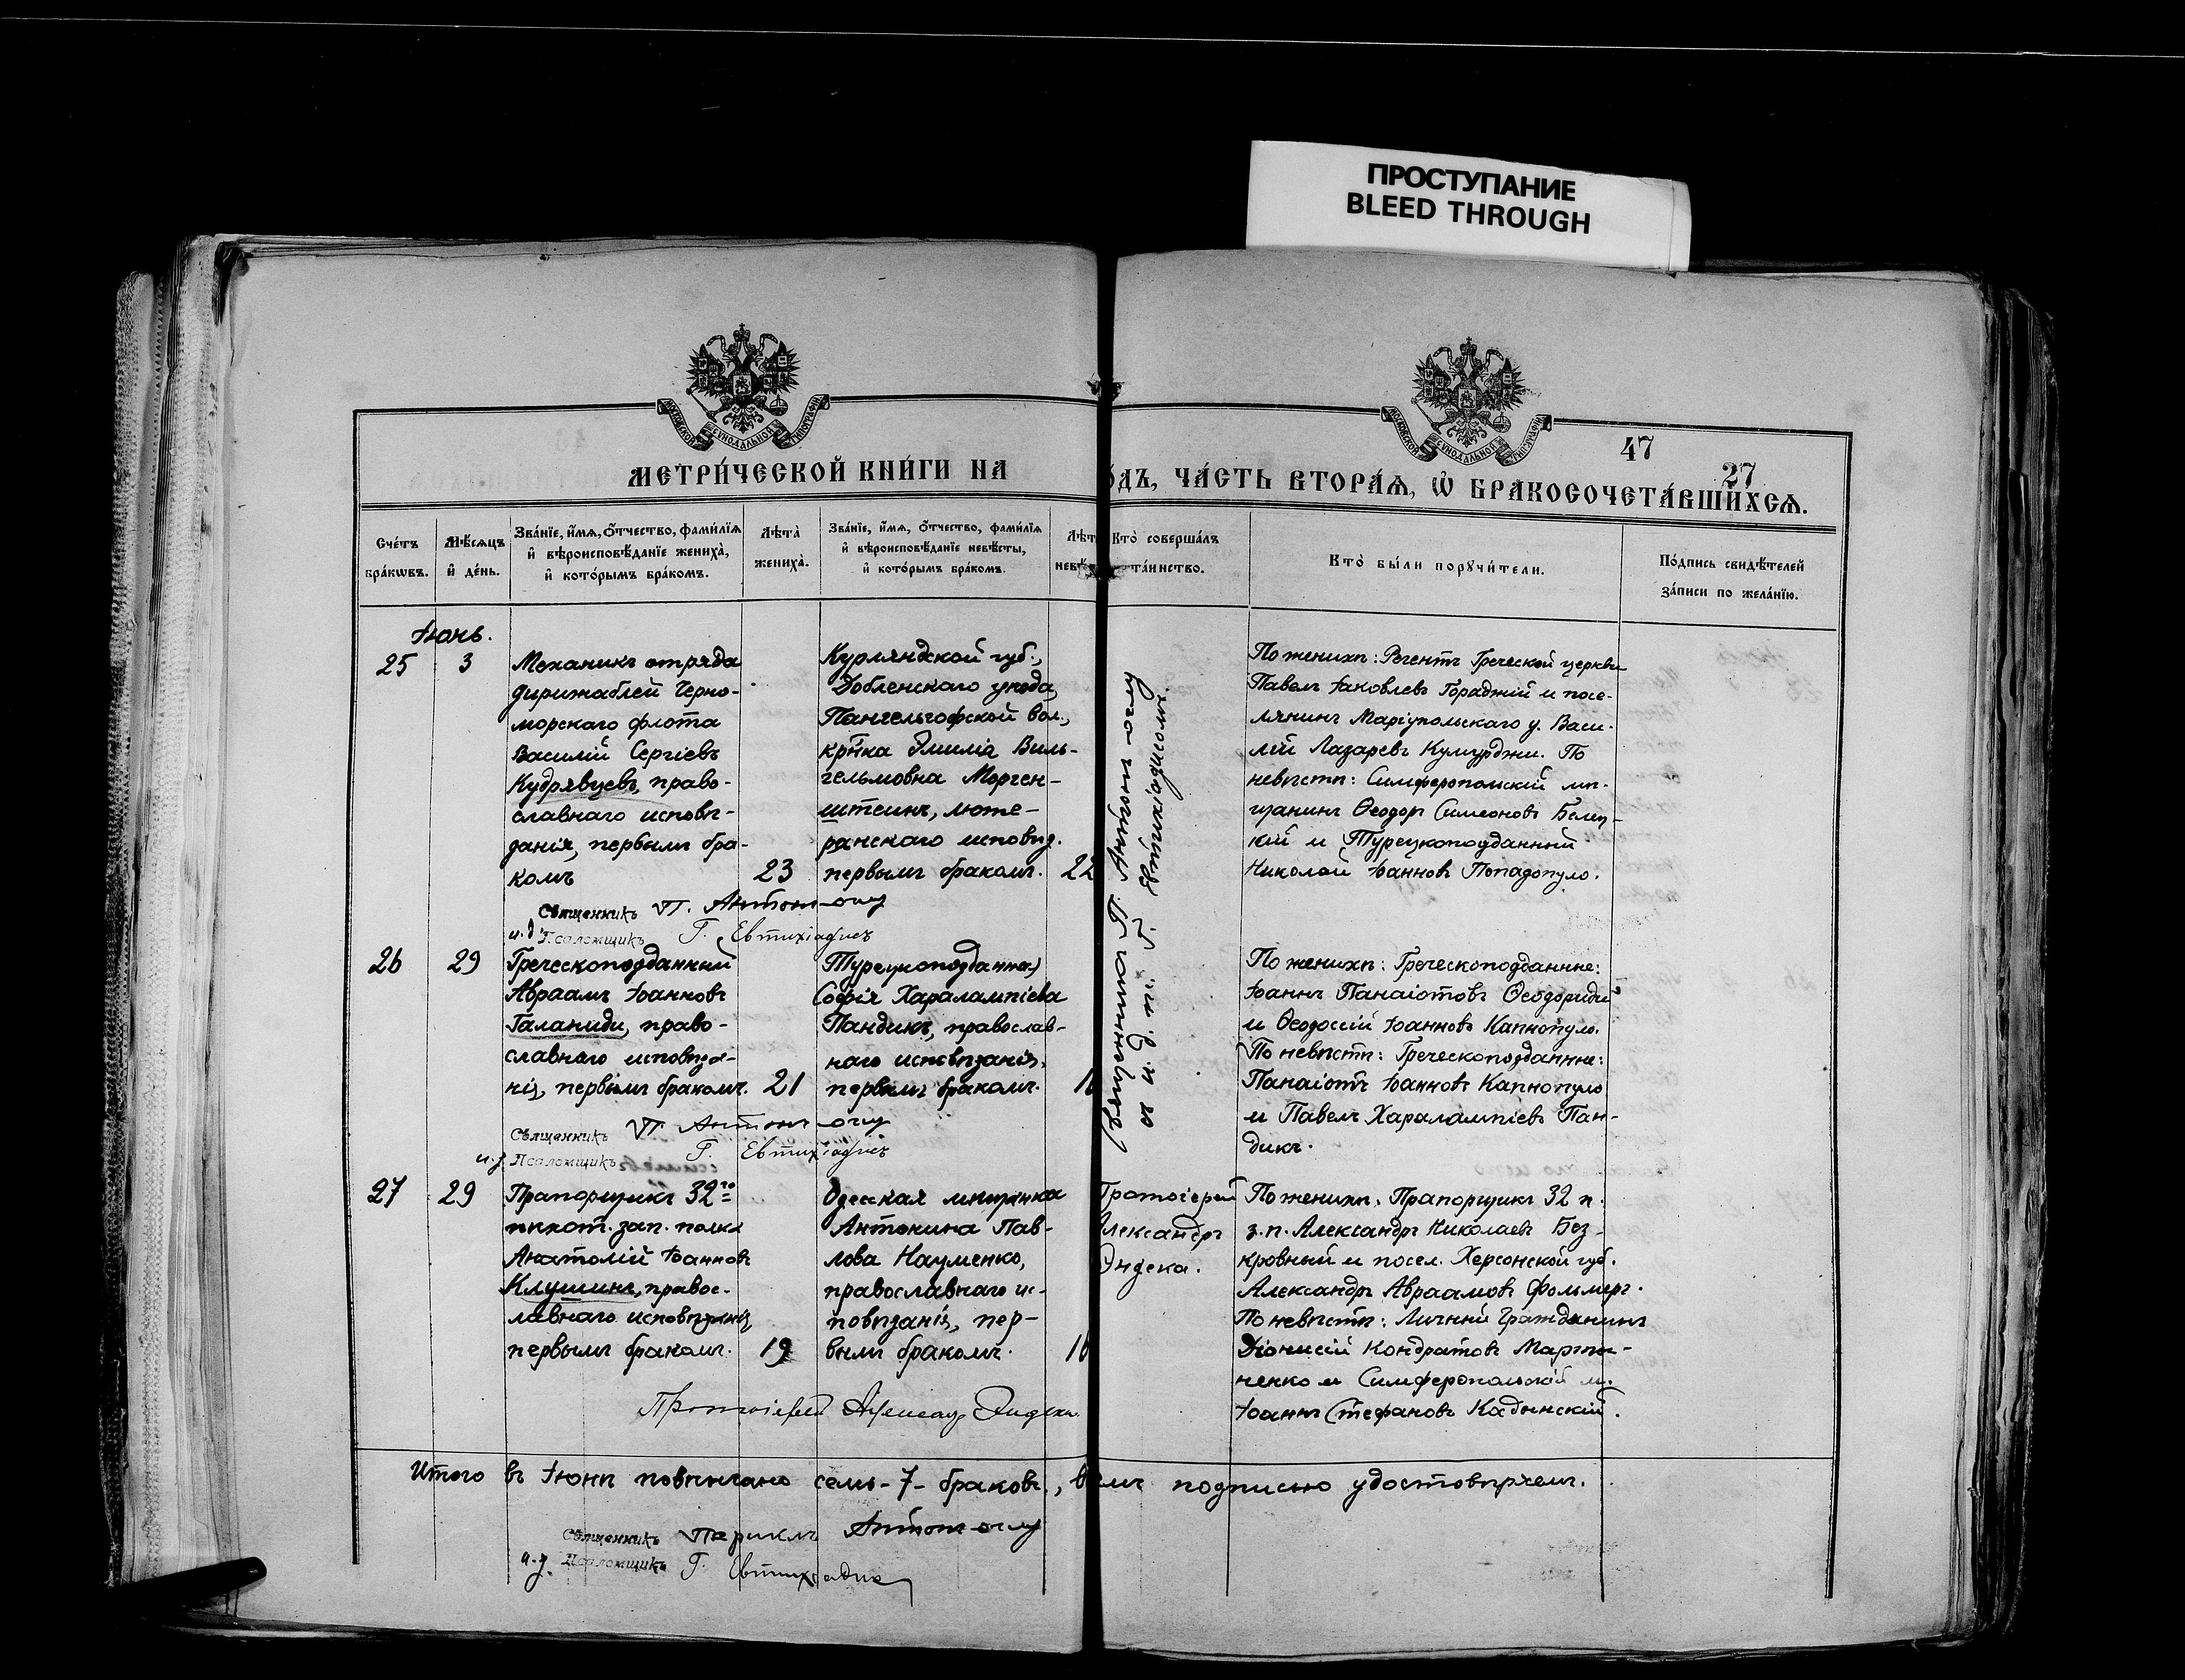 ПРОСТУПАНИЕ
BLEED THROUGH
МОСКОВСКОЙ СѴНОДАЛЬНОЙ ТИПОГРАФІИ
МОСКОВСКОЙ СѴНОДАЛЬНОЙ ТИПОГРАФІИ
47
27
МЕТРИ́ЧЕСКОЙ КНИ́ГИ НА
О́ДЪ, ЧА́СТЬ ВТОРА́Ѧ, Ѡ БРАКОСОЧЕТА́ВШИХСѦ.
Сче́тъ бра́кѡвъ.
Мѣ́сѧцъ и де́нь.
Зва́нїе, и́мѧ, о́тчество, фами́лїѧ
и вѣроисповѣ́данїе жениха̀,
и кото́рымъ бра́комъ.
Лѣта̀ жениха̀.
Зва́нїе, и́мѧ, о́тчество, фами́лїѧ
и вѣроисповѣ́данїе невѣ́сты,
и кото́рымъ бра́комъ.
Лѣт
невѣ
Кто̀ соверша́лъ
та́инство.
Кто̀ бы́ли порꙋчи́тели.
По́дпись свидѣ́телей
за́писи по жела́нїю.
Іюнь.
25
3
Механикъ отряда
дирижаблей Черно-
морскаго флота
Василій Сергіевъ
Кудрявцевъ, право-
славнаго исповѣ-
данія, первымъ бра-
комъ
23
Курляндской губ.,
Добленскаго уѣзда,
Пангельгофской вол.,
кр-нка Эмилія Виль-
гельмовна Морген-
штеинъ, люте-
ранскаго исповѣд.
первымъ бракомъ.
22
Священникъ П. Антоногиу
и д. псаломщикъ Г. Евтихіадисомъ.
По женихѣ: Регентъ Греческой церкви
Павелъ Іаковлевъ Гораджій и посе-
лянинъ Маріупольскаго у. Васи-
лій Лазаревъ Кумурджи. По
невѣстѣ: Симферопольскій мѣ-
щанинъ Ѳеодоръ Симеоновъ Белец-
кій и Турецкоподданный
Николай Іоанновъ Попадопуло.
Священникъ П.
и.д. Псаломщикъ Г. Евтихіадисъ
26
29
Греческоподданный
Авраамъ Іоанновъ
Галаниди, право-
славнаго исповѣда-
нія, первымъ бракомъ.
21
Турецкоподданная
Софія Харалампіева
Пандикъ, православ-
наго исповѣданія,
первымъ бракомъ.
По женихѣ: Греческоподданные:
Іоаннъ Панаіотовъ Ѳеодориди
и Ѳеодосій Іоанновъ Капнопуло.
По невѣстѣ: Греческоподданные:
Панаіотъ Іоанновъ Капнопуло
и Павелъ Харалампіевъ Пан-
дикъ.
Священникъ П.
и.д. Псаломщикъ Г. Евтихіадисъ
27
29
Прапорщикъ 32го
пѣхот. зап. полка
Анатолій Іоанновъ
Клушинъ, правос-
лавнаго исповѣданія,
первымъ бракомъ.
19
Одесская мѣщанка
Антонина Пав-
лова Науменко,
православнаго ис-
повѣданія, пер-
вымъ бракомъ.
Протоіерей
Александръ
Эндека.
По женихѣ: Прапорщикъ 32 п.
з.п. Александръ Николаевъ Без-
кровный и посел. Херсонской губ.
Александръ Авраамовъ Фольмеръ.
По невѣстѣ: Личный Гражданинъ
Діонисій Кондратовъ Марты-
ненко и Симферопольскій м.
Іоаннъ Стефановъ Кадынскій.
Протоіерей Александр Эндека
Итого въ Іюнѣ повѣнчано семь-7-браковъ, въ чемъ подписью удостовѣряемъ.
Священникъ Периклъ
и.д. Псаломщикъ Г. Евтихіадис